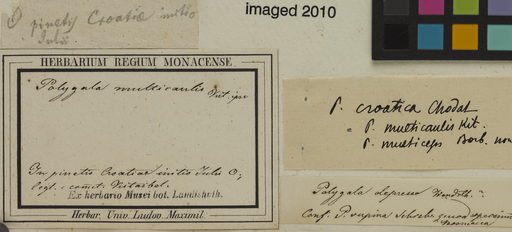 imaged 2010
pinetis Croatiae initio
Julii
HERBARIUM REGIUM MONACENSE.
Polygala multicaulis Kit. ipse
In pinetis Croatiae initio Julii
legi: comit: Kitaibel.
Ex herbario Musei bot. Landishuth.
Herbar. Univ. Ludov. Maximil.
P. croatica Chodat
= P. multicaulis Kit.
P. multiceps Borb. non
Polygala depressa Wender.
Conf. P. supina Schreb. quoad specimina